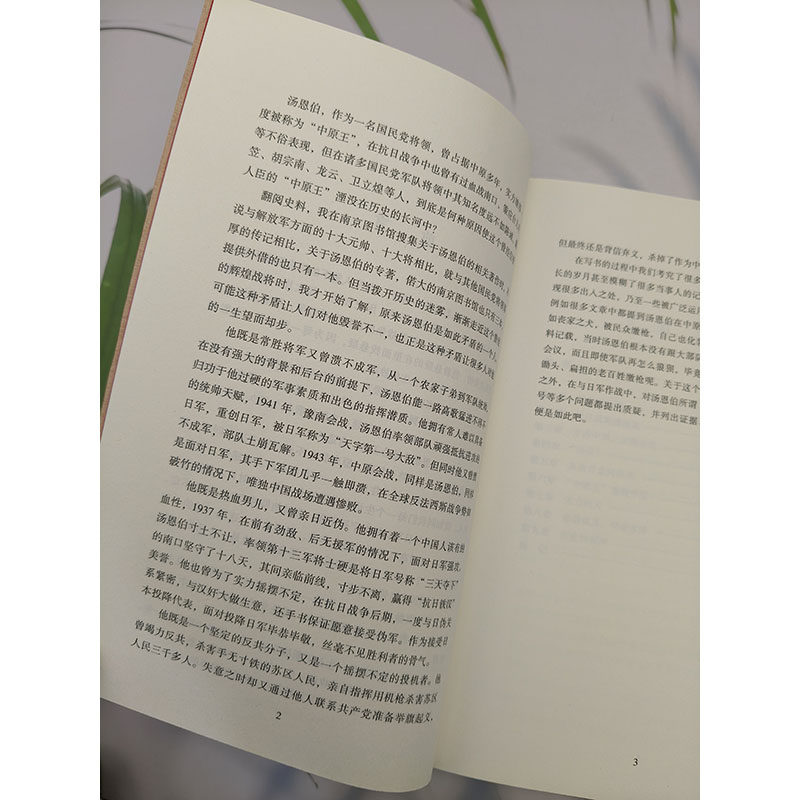 汤恩伯，作为一名国民党将领，曾占据中原多年，实力
度被称为“中原王”，在抗日战争中也曾有过血战南口、
等不俗表现，但在诸多国民党军队将领中其知名度远不如
笠、胡宗南、龙云、卫立煌等人，到底是何种原因使这个曾
人臣的“中原王”湮没在历史的长河中？
翻阅史料，我在南京图书馆搜集关于汤恩伯的相关著作时，
说与解放军方面的十大元帅、十大将相比，就与其他国民党将领
厚的传记相比，关于汤恩伯的专著，偌大的南京图书馆也只有三
提供外借的也只有一本。但当拨开历史的迷雾，渐渐走近这个曾
的辉煌战将时，我才开始了解，原来汤恩伯是如此矛盾的一个人，
可能这种矛盾让人们对他毁誉不一，也正是这种矛盾让很多人对他
的一生望而却步。
他既是常胜将军又曾溃不成军，从一个农家子弟到军队统帅，
在没有强大的背景和后台的前提下，汤恩伯能一路高歌猛进不得不
归功于他过硬的军事素质和出色的指挥潜质。他拥有常人难以具备
的统帅天赋，1941 年，豫南会战，汤恩伯率领部队顽强抵抗进攻的
日军，重创日军，被日军称为“天字第一号大敌”。但同时他又曾溃
不成军，部队土崩瓦解。1943 年，中原会战，同样是汤恩伯，同样
是面对日军，其手下军团几乎一触即溃，在全球反法西斯战争势如
破竹的情况下，唯独中国战场遭遇惨败。
他既是热血男儿，又曾亲日近伪。他拥有着一个中国人该有的
血性，1937 年，在前有劲敌、后无援军的情况下，面对日军强攻，
汤恩伯寸土不让，率领第十三军将士硬是将日军号称“三天夺下”
的南口坚守了十八天，其间亲临前线，寸步不离，赢得“抗日铁汉”
美誉。他也曾为了实力摇摆不定，在抗日战争后期，一度与日伪关
系紧密，与汉奸大做生意，还手书保证愿意接受伪军。作为接受日
本投降代表，面对投降日军毕恭毕敬，丝毫不见胜利者的骨气。
他既是一个坚定的反共分子，又是一个摇摆不定的投机者。他
曾竭力反共，杀害手无寸铁的苏区人民，亲自指挥用机枪杀害苏区
人民三千多人。失意之时却又通过他人联系共产党准备举旗起义，
2
但最终还是背信弃义，杀掉了作为中
在写书的过程中我们考究了很多
长的岁月甚至模糊了很多当事人的记
现很多出入之处，乃至一些被广泛运用
例如很多文章中都提到汤恩伯在中原
如丧家之犬，被民众缴枪，自己也化
料记载，当时汤恩伯根本没有跟大部
会议，而且即使军队再怎么狼狈，毕竟
锄头、扁担的老百姓缴枪呢。关于这个
之外，在与日军作战中，对汤恩伯所谓
号等多个问题都提出质疑，并列出证据
便是如此吧。
3